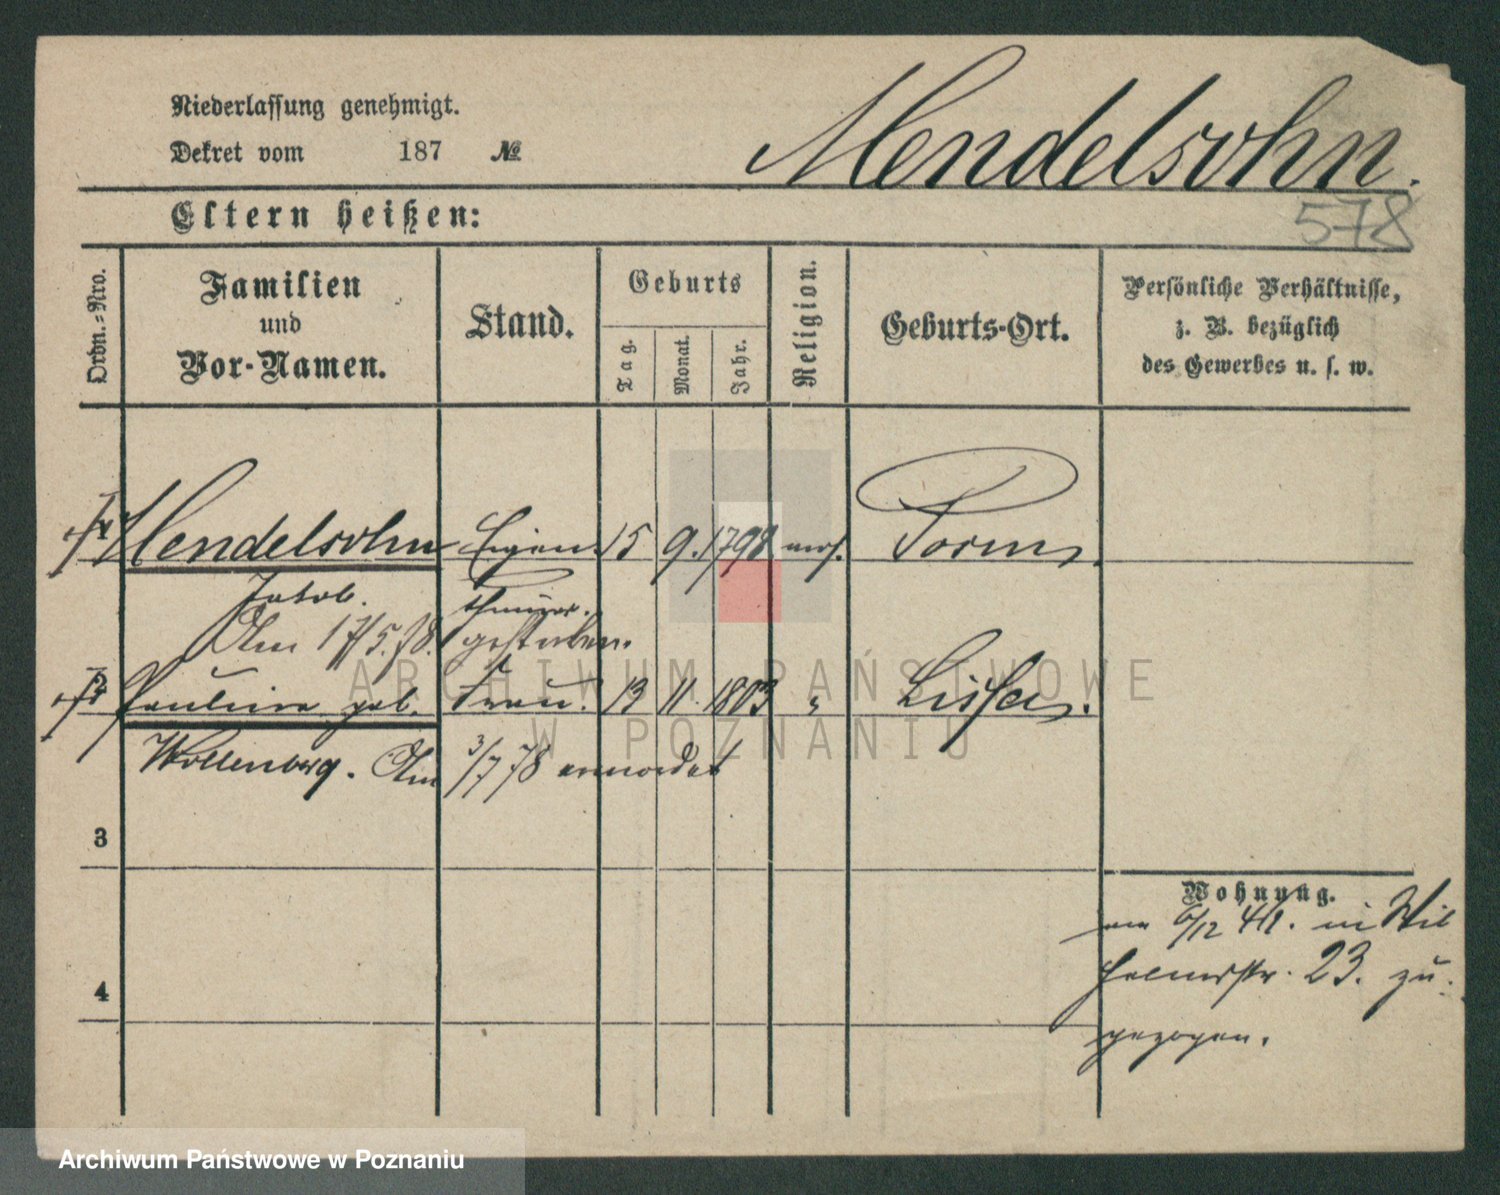 Niederlassung genehmigt.
Dekret vom 187 №
Mendelsohn.
578
Eltern heißen:
Ordn.-Nro.
Familien
und
Vor-Namen.
Stand.
Geburts
Tag.
Monat.
Jahr.
Religion.
Geburts-Ort.
Persönliche Verhältnisse,
z. B. bezüglich
des Gewerbes u. s. w.
Mendelsohn Eigen 15 9. 1798 mos. Posen
Jakob.
Am 17/5.78. gestorben.
Pauline geb. Frau. 13 11. 1803 " Lissa.
Wollenberg. Am 3/7 78
3
4
Wohnung.
am 6/12 41. in Wil
helmstr. 23. zu
gezogen.
ARCHIWUM PAŃSTWOWE
W POZNANIU
Archiwum Państwowe w Poznaniu